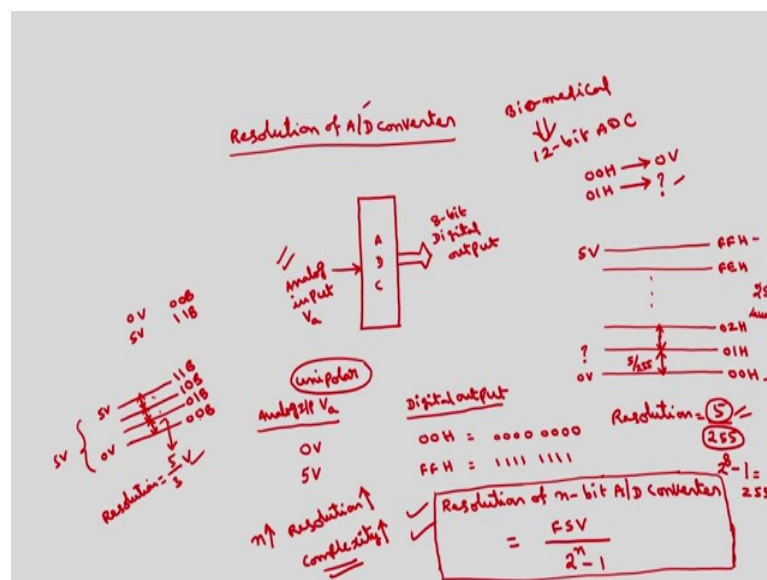 Resolution of A/D converter
Bio-medical
12-bit ADC
00H → 0V
01H → ?
Analog
input
Va
A
D
C
8-bit
Digital
output
5V FFH
FEH
02H
? 01H
5/255
0V 00H
0V 00B
5V 11B
5V 11B
10B
01B
0V 00B
5V
Resolution = 5/3 V
unipolar
Analog I/P Va Digital output
0V 00H = 0000 0000
5V FFH = 1111 1111
Resolution = 5
255
2⁸-1 =
255
n↑ Resolution↑
Complexity↑
Resolution of n-bit A/D converter
= FSV
2ⁿ-1